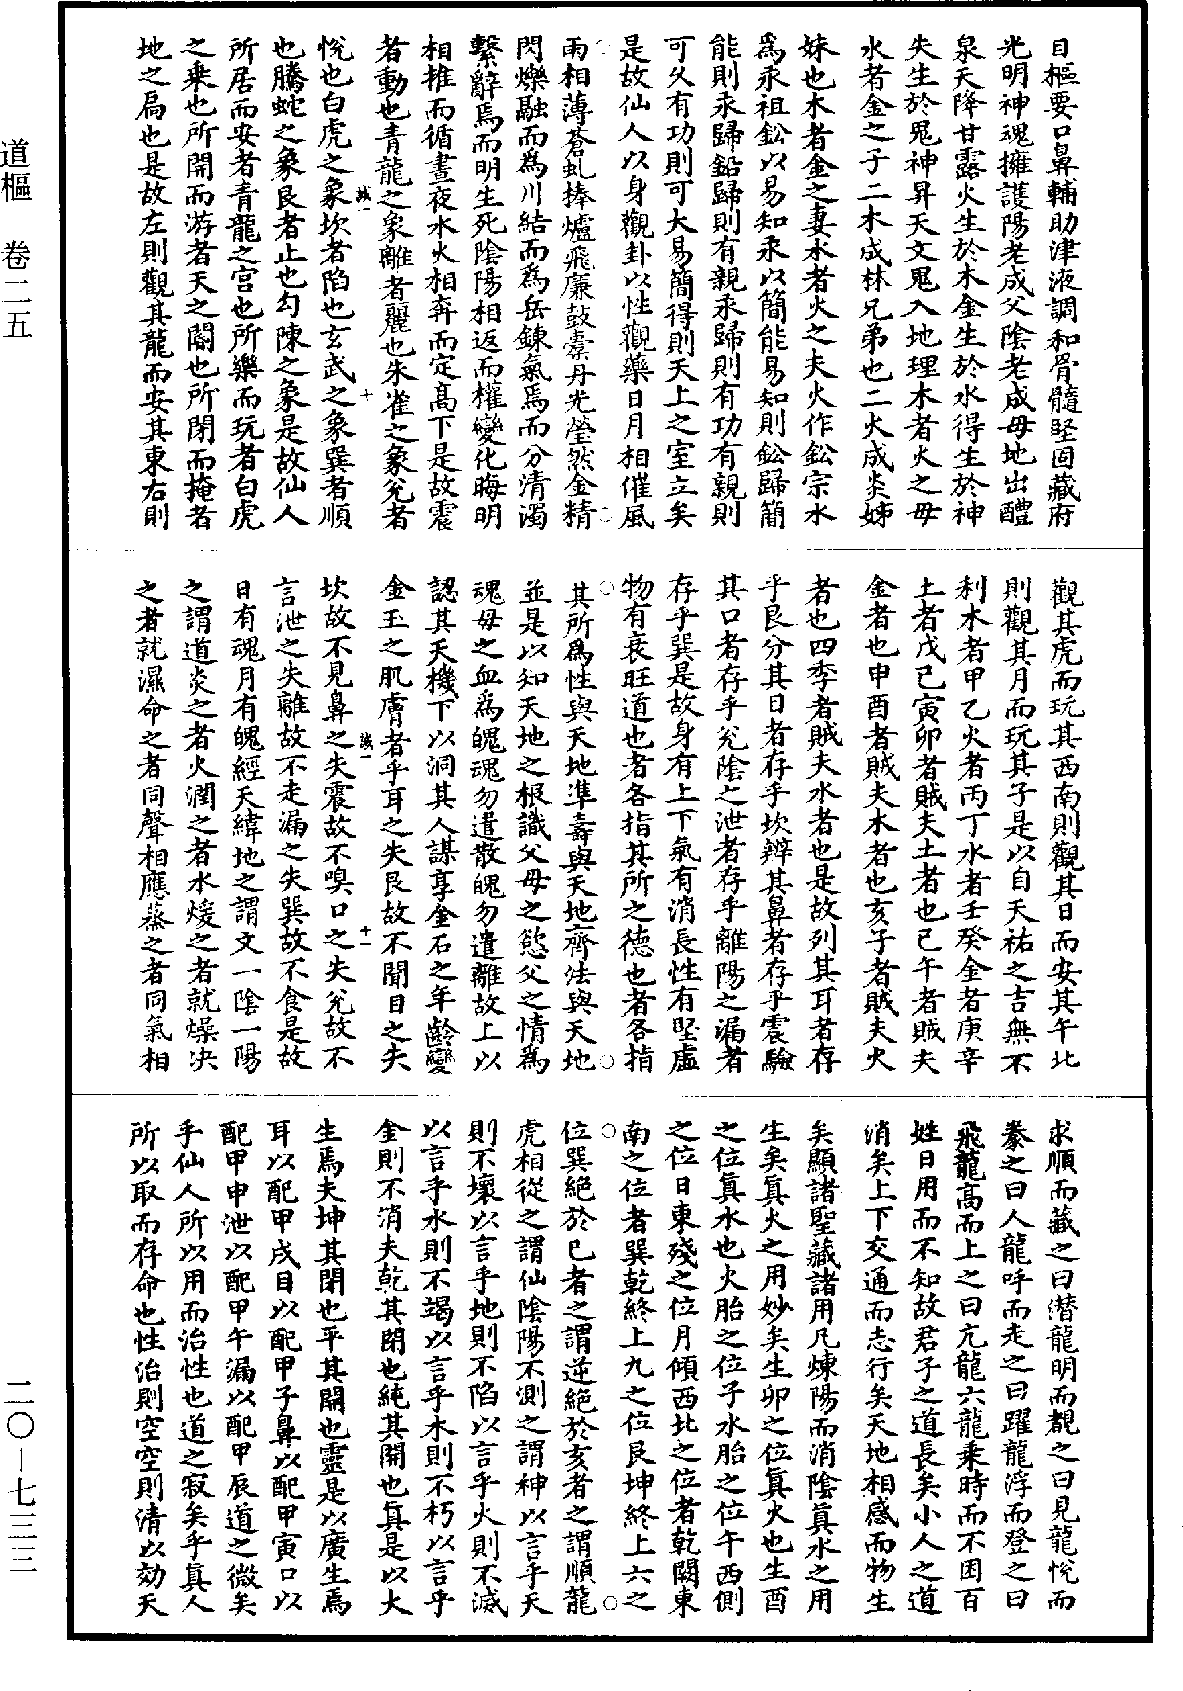 目樞要口鼻輔助津液調和骨髓堅固藏府
光明神魂擁護陽老成父陰老成母地出醴
泉天降甘露火生於木金生於水得生於神
失生於鬼神昇天文鬼入地理木者火之母
水者金之子二木成林兄弟也二火成炎姊
妹也木者金之妻水者火之夫火作鈆宗水
爲汞祖鈆以易知汞以簡能易知則鈆歸簡
能則汞歸鉛歸則有親汞歸則有功有親則
可久有功則可大易簡得則天上之室立矣
是故仙人以身觀卦以性觀藥日月相催風
雨相薄蒼虬捧爐飛廉鼓橐丹光瑩然金精
閃爍融而為川結而爲岳鍊氣焉而分清濁
繫辭焉而明生死陰陽相返而權變化晦明
相推而循晝夜水火相奔而定高下是故震
者動也青龍之象離者麗也朱雀之象兊者
悅也白虎之象坎者陷也玄武之象巽者順
也騰蛇之象艮者止也勾陳之象是故仙人
所居而安者青龍之宫也所樂而玩者白虎
之乗也所開而游者天之闔也所閉而掩者
地之扃也是故左則觀其龍而安其東右則
觀其虎而玩其西南則觀其日而安其午北
則觀其月而玩其子是以自天祐之吉無不
利木者甲乙火者丙丁水者壬癸金者庚辛
土者戊己寅卯者賊夫土者也巳午者賊夫
金者也申酉者賊夫木者也亥子者賊夫火
者也四季者賊夫水者也是故列其耳者存
乎艮分其目者存乎坎辨其鼻者存乎震驗
其口者存乎兊陰之泄者存乎離陽之漏者
存乎巽是故身有上下氣有消長性有堅虛
物有衰旺道也者各指其所之德也者各指
其所爲性與天地準壽與天地齊法與天地
並是以知天地之根識父母之慾父之情爲
魂母之血爲魄魂勿遣散魄勿遣離故上以
認其天機下以洞其人謀享金石之年齡變
金玉之肌膚者乎耳之失艮故不聞目之失
坎故不見鼻之失震故不嗅口之失兊故不
言泄之失離故不走漏之失巽故不食是故
日有魂月有魄經天緯地之謂文一陰一陽
之謂道炎之者火潤之者水煖之者就燥决
之者就濕命之者同聲相應蒸之者同氣相
求順而藏之曰潛龍明而覩之曰見龍悅而
豢之曰人龍呼而走之曰躍龍浮而登之曰
飛龍高而上之曰亢龍六龍乗時而不困百
姓日用而不知故君子之道長矣小人之道
消矣上下交通而志行矣天地相感而物生
矣顯諸聖藏諸用凡煉陽而消陰真水之用
生矣真火之用妙矣生卯之位真火也生酉
之位真水也火胎之位子水胎之位午西側
之位日東殘之位月傾西北之位者乾闕東
南之位者巽乾終上九之位艮坤終上六之
位巽絕於巳者之謂逆絕於亥者之謂順龍
虎相從之謂仙陰陽不測之謂神以言乎天
則不壞以言乎地則不陷以言乎火則不滅
以言乎水則不竭以言乎木則不朽以言乎
金則不消夫乾其閉也純其開也真是以大
生焉夫坤其閉也平其開也靈是以廣生焉
耳以配甲戌目以配甲子鼻以配甲寅口以
配甲申泄以配甲午漏以配甲辰道之微矣
乎仙人所以用而治性也道之寂矣乎真人
所以取而存命也性治則空空則清以効天
誠一
十
誠一
十一
道樞 卷二五
二〇—七三三